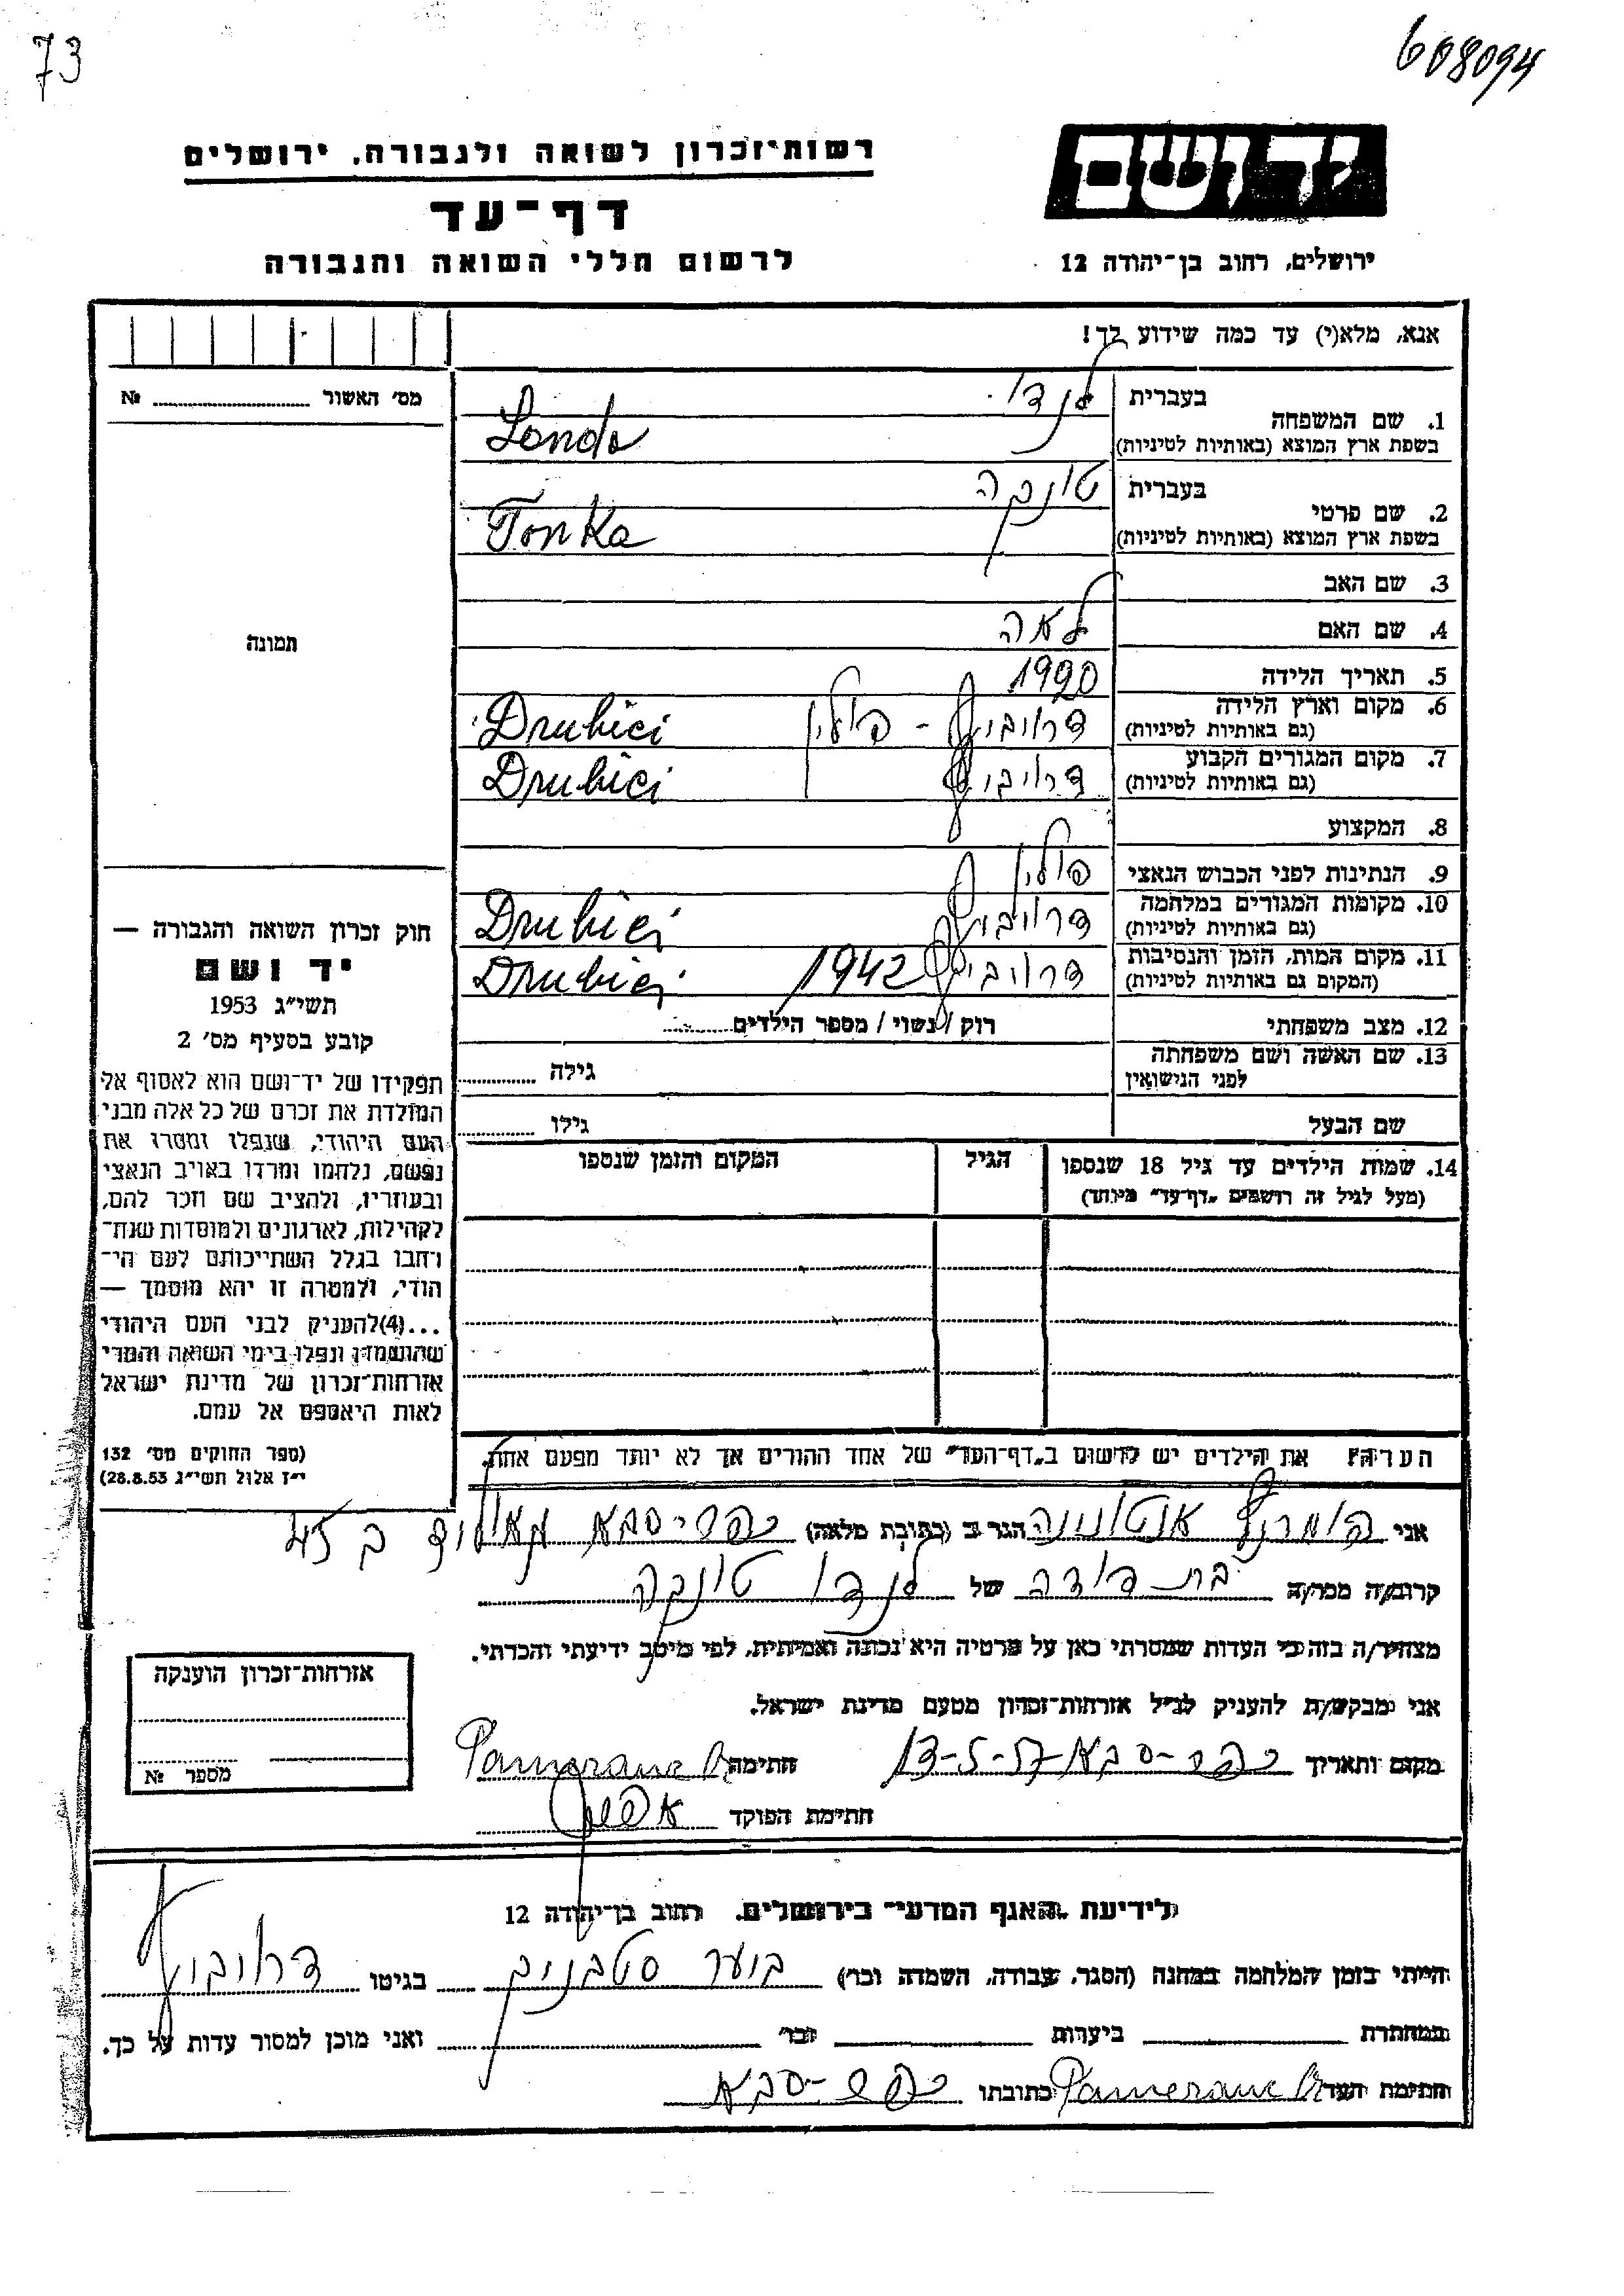 73
608094
רשות־זכרון לשואה ולגבורה, ירושלים
יד ושם
דף־עד
לרשום חללי השואה והגבורה
ירושלים, רחוב בן־יהודה 12
אנא, מלא(י) עד כמה שידוע לך!
מס׳ האשור № 
1. שם המשפחה בעברית לנדו
בשפת ארץ המוצא (באותיות לטיניות) Lando
2. שם פרטי בעברית טונקה
בשפת ארץ המוצא (באותיות לטיניות) Tonka
3. שם האב
4. שם האם לאה
תמונה
5. תאריך הלידה 1920
6. מקום וארץ הלידה (גם באותיות לטיניות) דרוביץ - פולין Drubici
7. מקום המגורים הקבוע (גם באותיות לטיניות) דרוביץ Drubici
8. המקצוע
9. הנתינות לפני הכבוש הנאצי פולין
10. מקומות המגורים במלחמה (גם באותיות לטיניות) דרוביץ Drubici
11. מקום המות, הזמן והנסיבות (המקום גם באותיות לטיניות) דרוביץ 1942 Drubici
12. מצב משפחתי רוק / נשוי / מספר הילדים
13. שם האשה ושם משפחתה לפני הנישואין גילה
שם הבעל גילו
14. שמות הילדים עד גיל 18 שנספו הגיל המקום והזמן שנספו
(מעל לגיל זה רושמים „דף־עד״ מיוחד)
חוק זכרון השואה והגבורה —
יד ושם
תשי״ג 1953
קובע בסעיף מס׳ 2
תפקידו של יד־ושם הוא לאסוף אל
המולדת את זכרם של כל אלה מבני
העם היהודי, שנפלו ומסרו את
נפשם, נלחמו ומרדו באויב הנאצי
ובעוזריו, ולהציב שם וזכר להם,
לקהילות, לארגונים ולמוסדות שנח־
רבו בגלל השתייכותם לעם הי־
הודי, ולמטרה זו יהא מוסמך —
...(4) להעניק לבני העם היהודי
שהושמדו ונפלו בימי השואה והמרי
אזרחות־זכרון של מדינת ישראל
לאות היאספם אל עמם.
(ספר החוקים מס׳ 132
י״ז אלול תשי״ג 28.8.53)
הערה: את הילדים יש לרשום ב„דף־העד״ של אחד ההורים אך לא יותר מפעם אחת.
אני אנטונינה הגר ב (כתובת מלאה) כפר-סבא
קרוב/ה מכר/ה בת דודה של לנדו טונקה
מצהיר/ה בזה כי העדות שמסרתי כאן על פרטיה היא נכונה ואמיתית, לפי מיטב ידיעתי והכרתי.
אני מבקש/ת להעניק לנ״ל אזרחות־זכרון מטעם מדינת ישראל.
מקום ותאריך כפר-סבא 13-5-57 חתימה
חתימת הפוקד
אזרחות־זכרון הוענקה
מספר №
לידיעת „האגף המדעי״ בירושלים, רחוב בן־יהודה 12
הייתי בזמן המלחמה במחנה (הסגר, עבודה, השמדה וכו׳) בגיטו דרוביץ
במחתרת ביערות וכו׳ ואני מוכן למסור עדות על כך.
חתימת העד כתובתו כפר-סבא